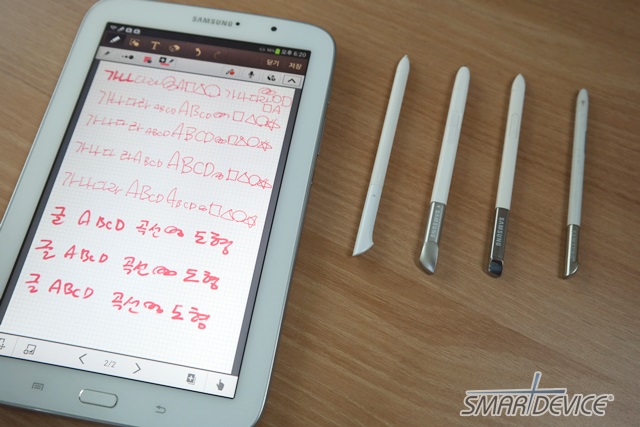 SAMSUNG
오후 6:20
T
닫기 저장
가나다라 ABCD
가나다라 ABCD
가나다라 ABCD
가나다라 ABCD ABCD
글 ABCD 곡선 도형
글 ABCD 곡선 도형
글 ABCD 곡선 도형
2/2
SAMSUNG
SAMSUNG
SMARTDEVICE